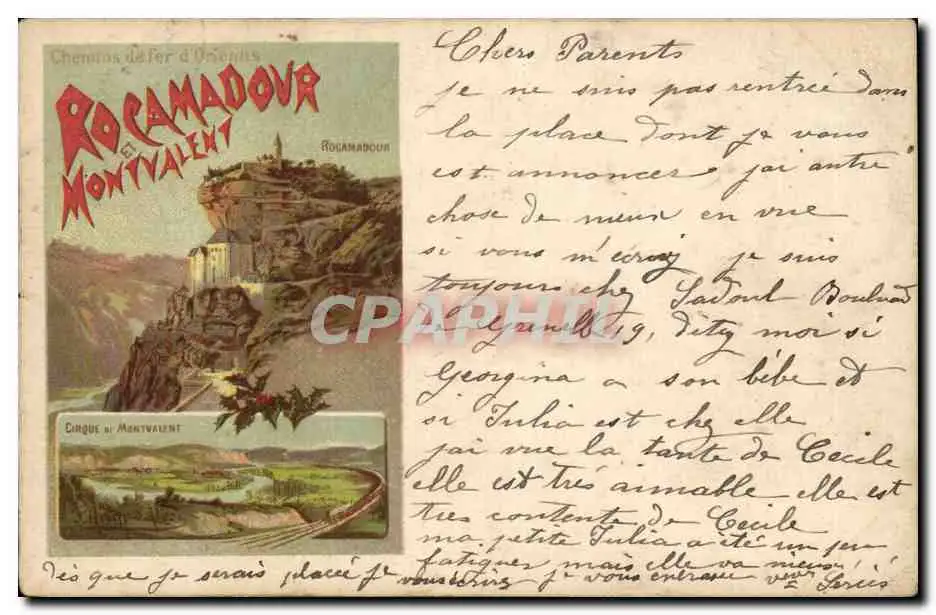 Chemins de fer d'Orléans
ROCAMADOUR
ET
MONTVALENT
ROCAMADOUR
CIRQUE DE MONTVALENT
CPAPHIL
Chers Parents
je ne suis pas rentrée dans
la place dont je vous
est annoncer j'ai autre
chose de mieux en vue
si vous m'écrivez je suis
toujours chez Sadoul Boulvard
de Grenelle 19, ditez moi si
Georgina a son bébé et
si Julia est chez elle
j'ai vue la tante de Cécile
elle est très aimable elle est
tres contente de Cécile
ma petite Julia a été un peu
fatiguer mais elle va mieux
dès que je serais placée je vous écrirez je vous embrasse